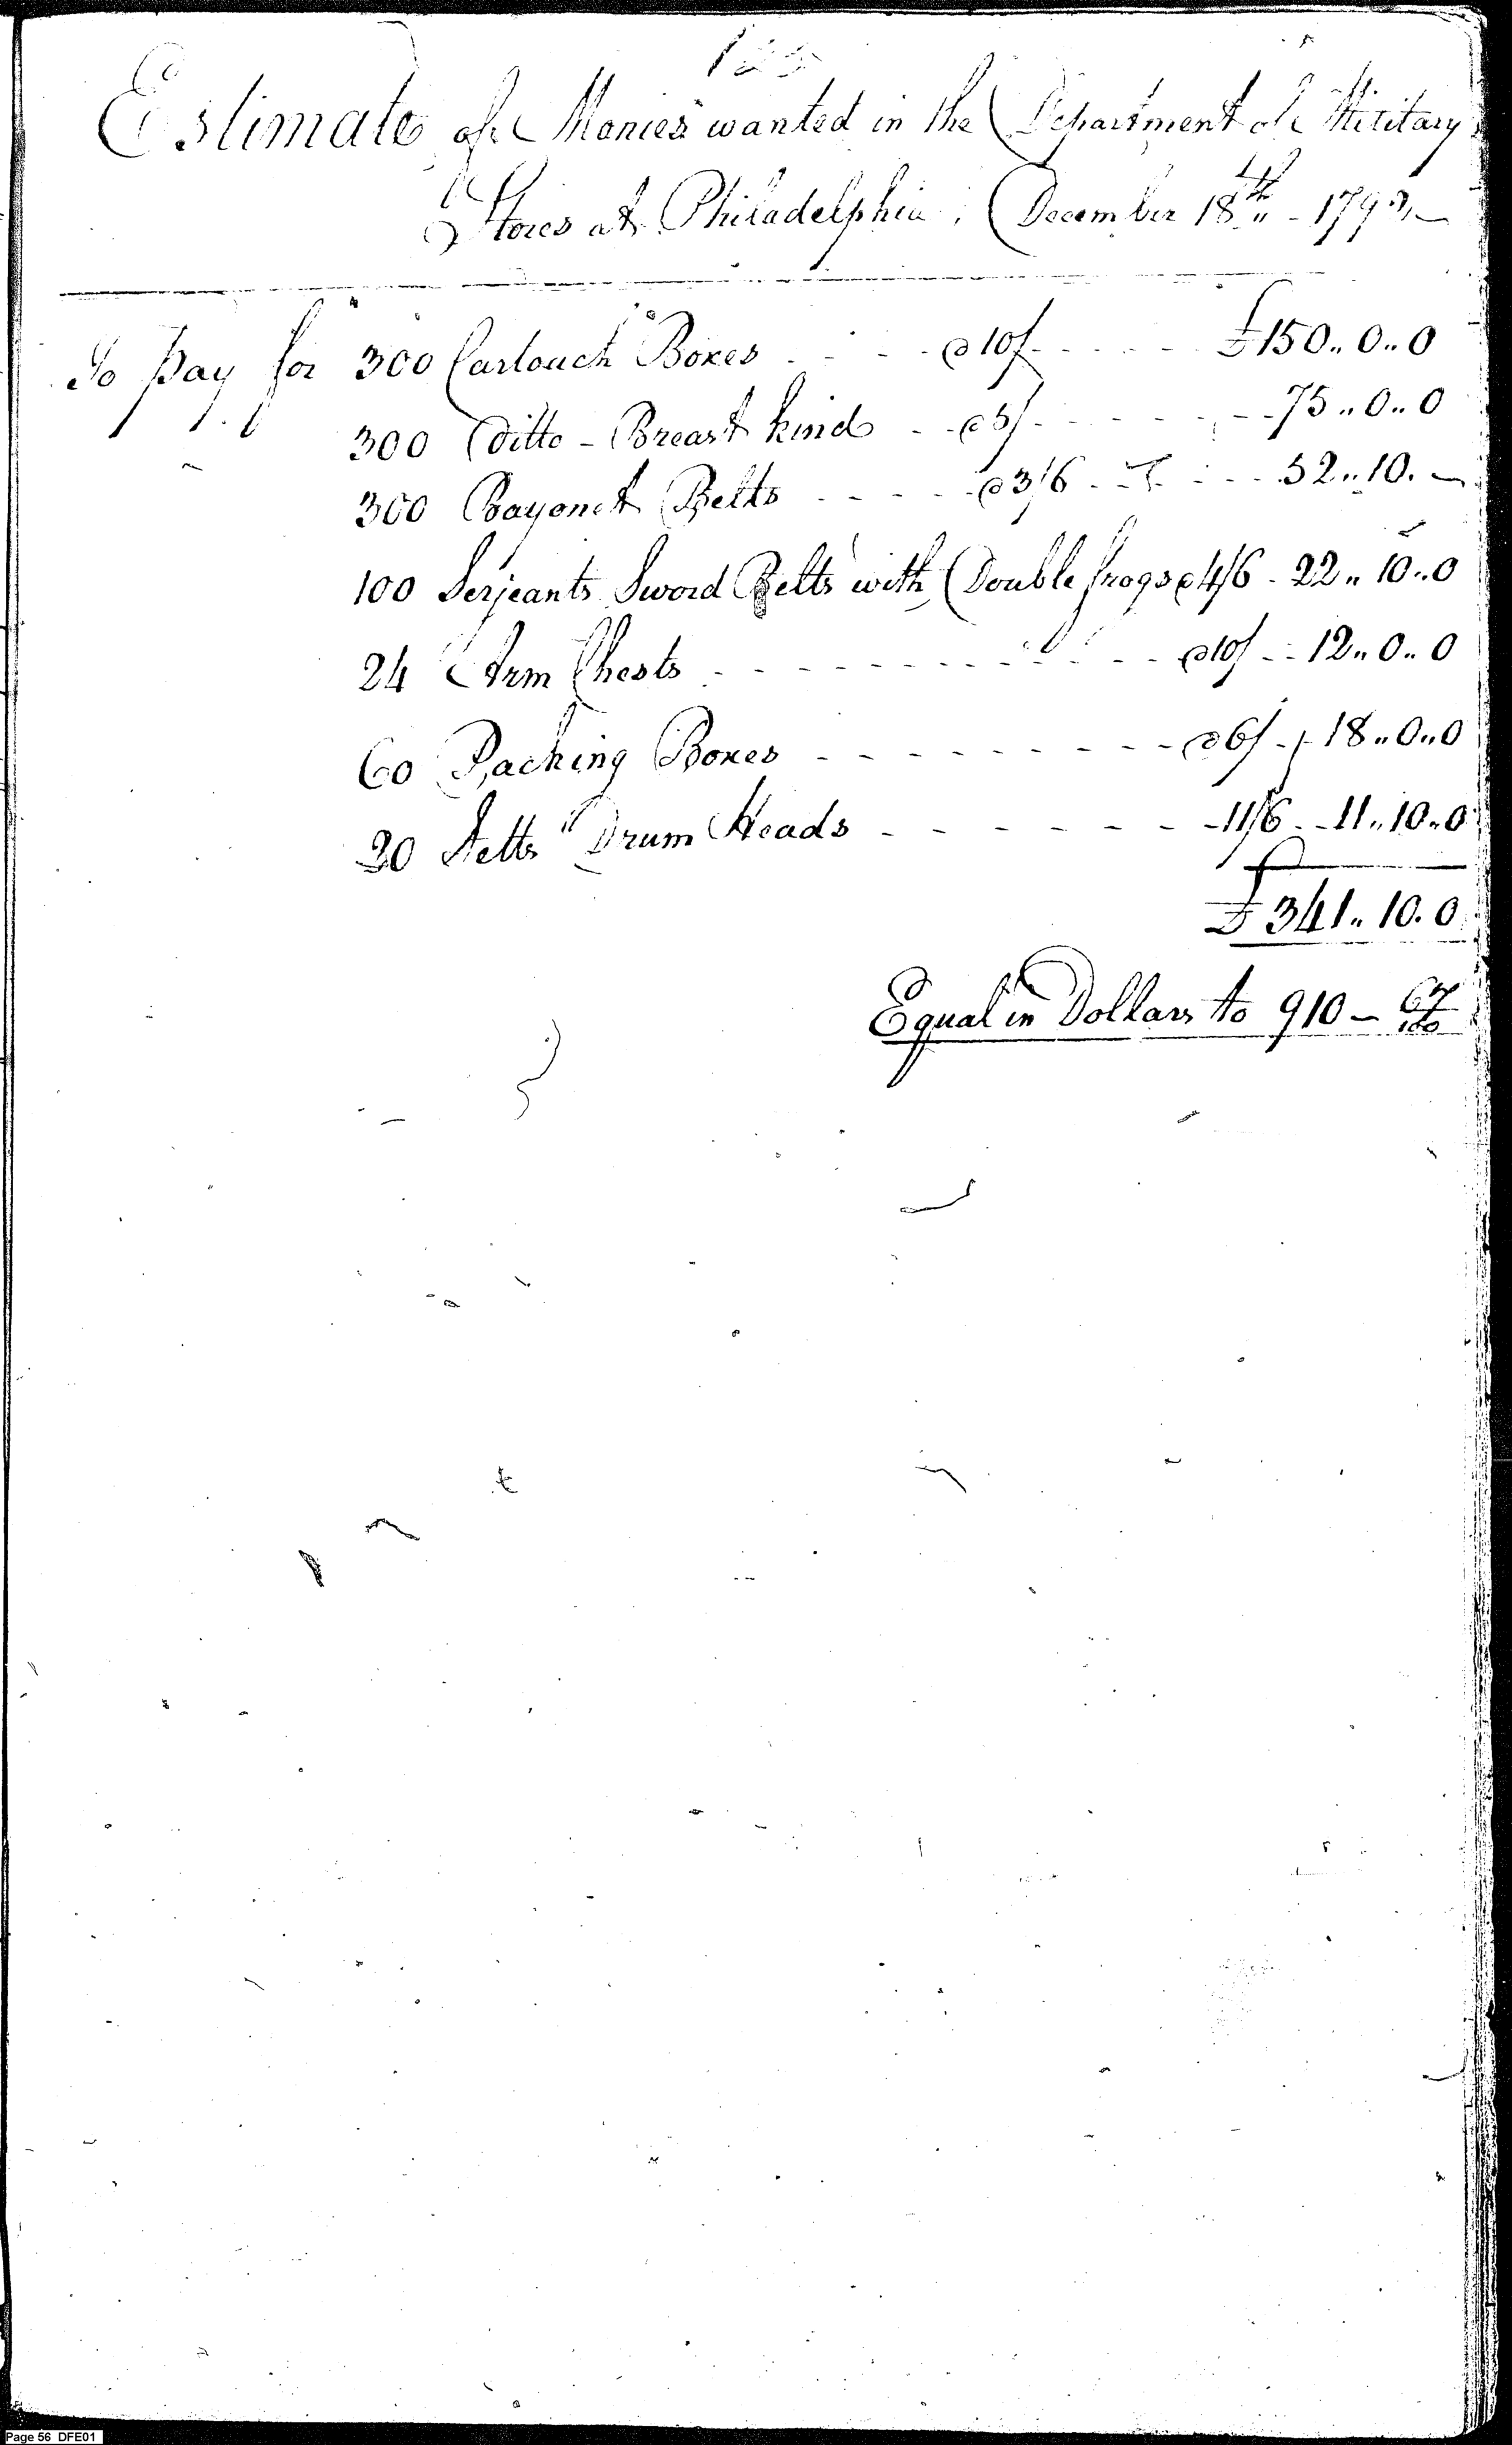 Estimate of Monies wanted in the Department of Military
Stores at Philadelphia, December 18th - 1793 -
To pay for 300 Cartouch Boxes - - - - @ 10/ - - - - - £150..0..0
300 Ditto - Breast kind - - @ 5/ - - - - - - - 75..0..0
300 Bayonet Belts - - - - - @ 3/6 - - - - - 52..10. -
100 Serjeants Sword Belts with Double frogs @ 4/6 - 22..10..0
24 Arm Chests - - - - - - - - - - - - @10/ - - 12..0..0
60 Packing Boxes - - - - - - - - - @ 6/ - - 18..0..0
20 Setts Drum Heads - - - - - - - 11/6 - - 11..10..0
£ 341..10.0
Equal in Dollars to 910 - 67/100
Page 56 DFE01